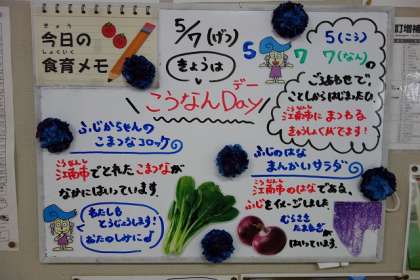 きょう
今日の
しょくいく
食育メモ
5/7(げつ)
きょうは
こうなんDay
デー
5(こう)
5 7 7(なん)の
ごろあわせで、
ことしからはじまったひ。
江南市にまつわる
きゅうしょくがでます!
ふじかちゃんの
こまつなコロッケ
こうなんし
江南市でとれた こまつなが
なかにはいっています
わたしも
とうじょうします!
おたのしみに♪
ふじのはな
まんかいサラダ
こうなんし
江南市のはなである、
ふじをイメージしました。
むらさき
たまねぎが
はいっています。